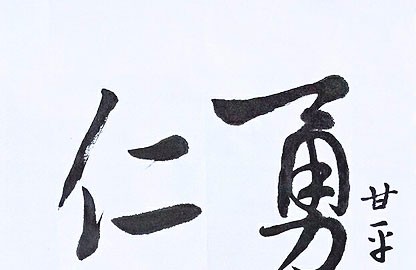 仁勇
甘平